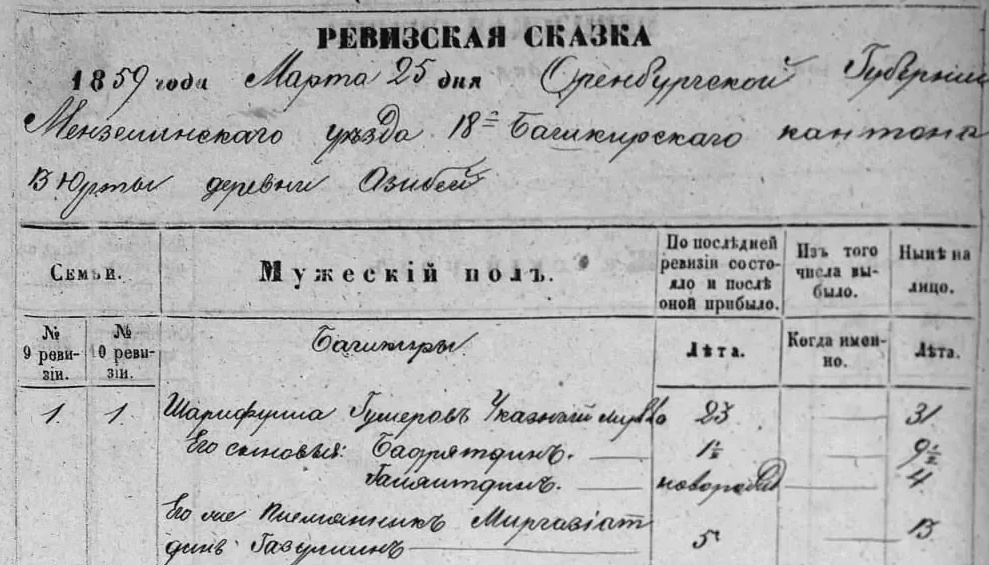 РЕВИЗСКАЯ СКАЗКА
1859 года Марта 25 дня Оренбургской Губернии
Мензелинскаго уѣзда 18го Башкирскаго кантона
13 Юрты деревни Азибей
Семьи. Мужескій полъ. По послѣдней ревизіи состояло и послѣ оной прибыло. Изъ того числа выбыло. Нынѣ на лицо.
№ 9 ревизіи. № 10 ревизіи. Башкиры Лѣта. Когда именно. Лѣта.
1. 1. Шарифулла Гумеровъ Указный мулла 23 31
Его сыновья: Бадрятдинъ. 1½ 9½
Гайнитдинъ. новорожд 4
Его же племянникъ Миргазіят
динъ 5 13